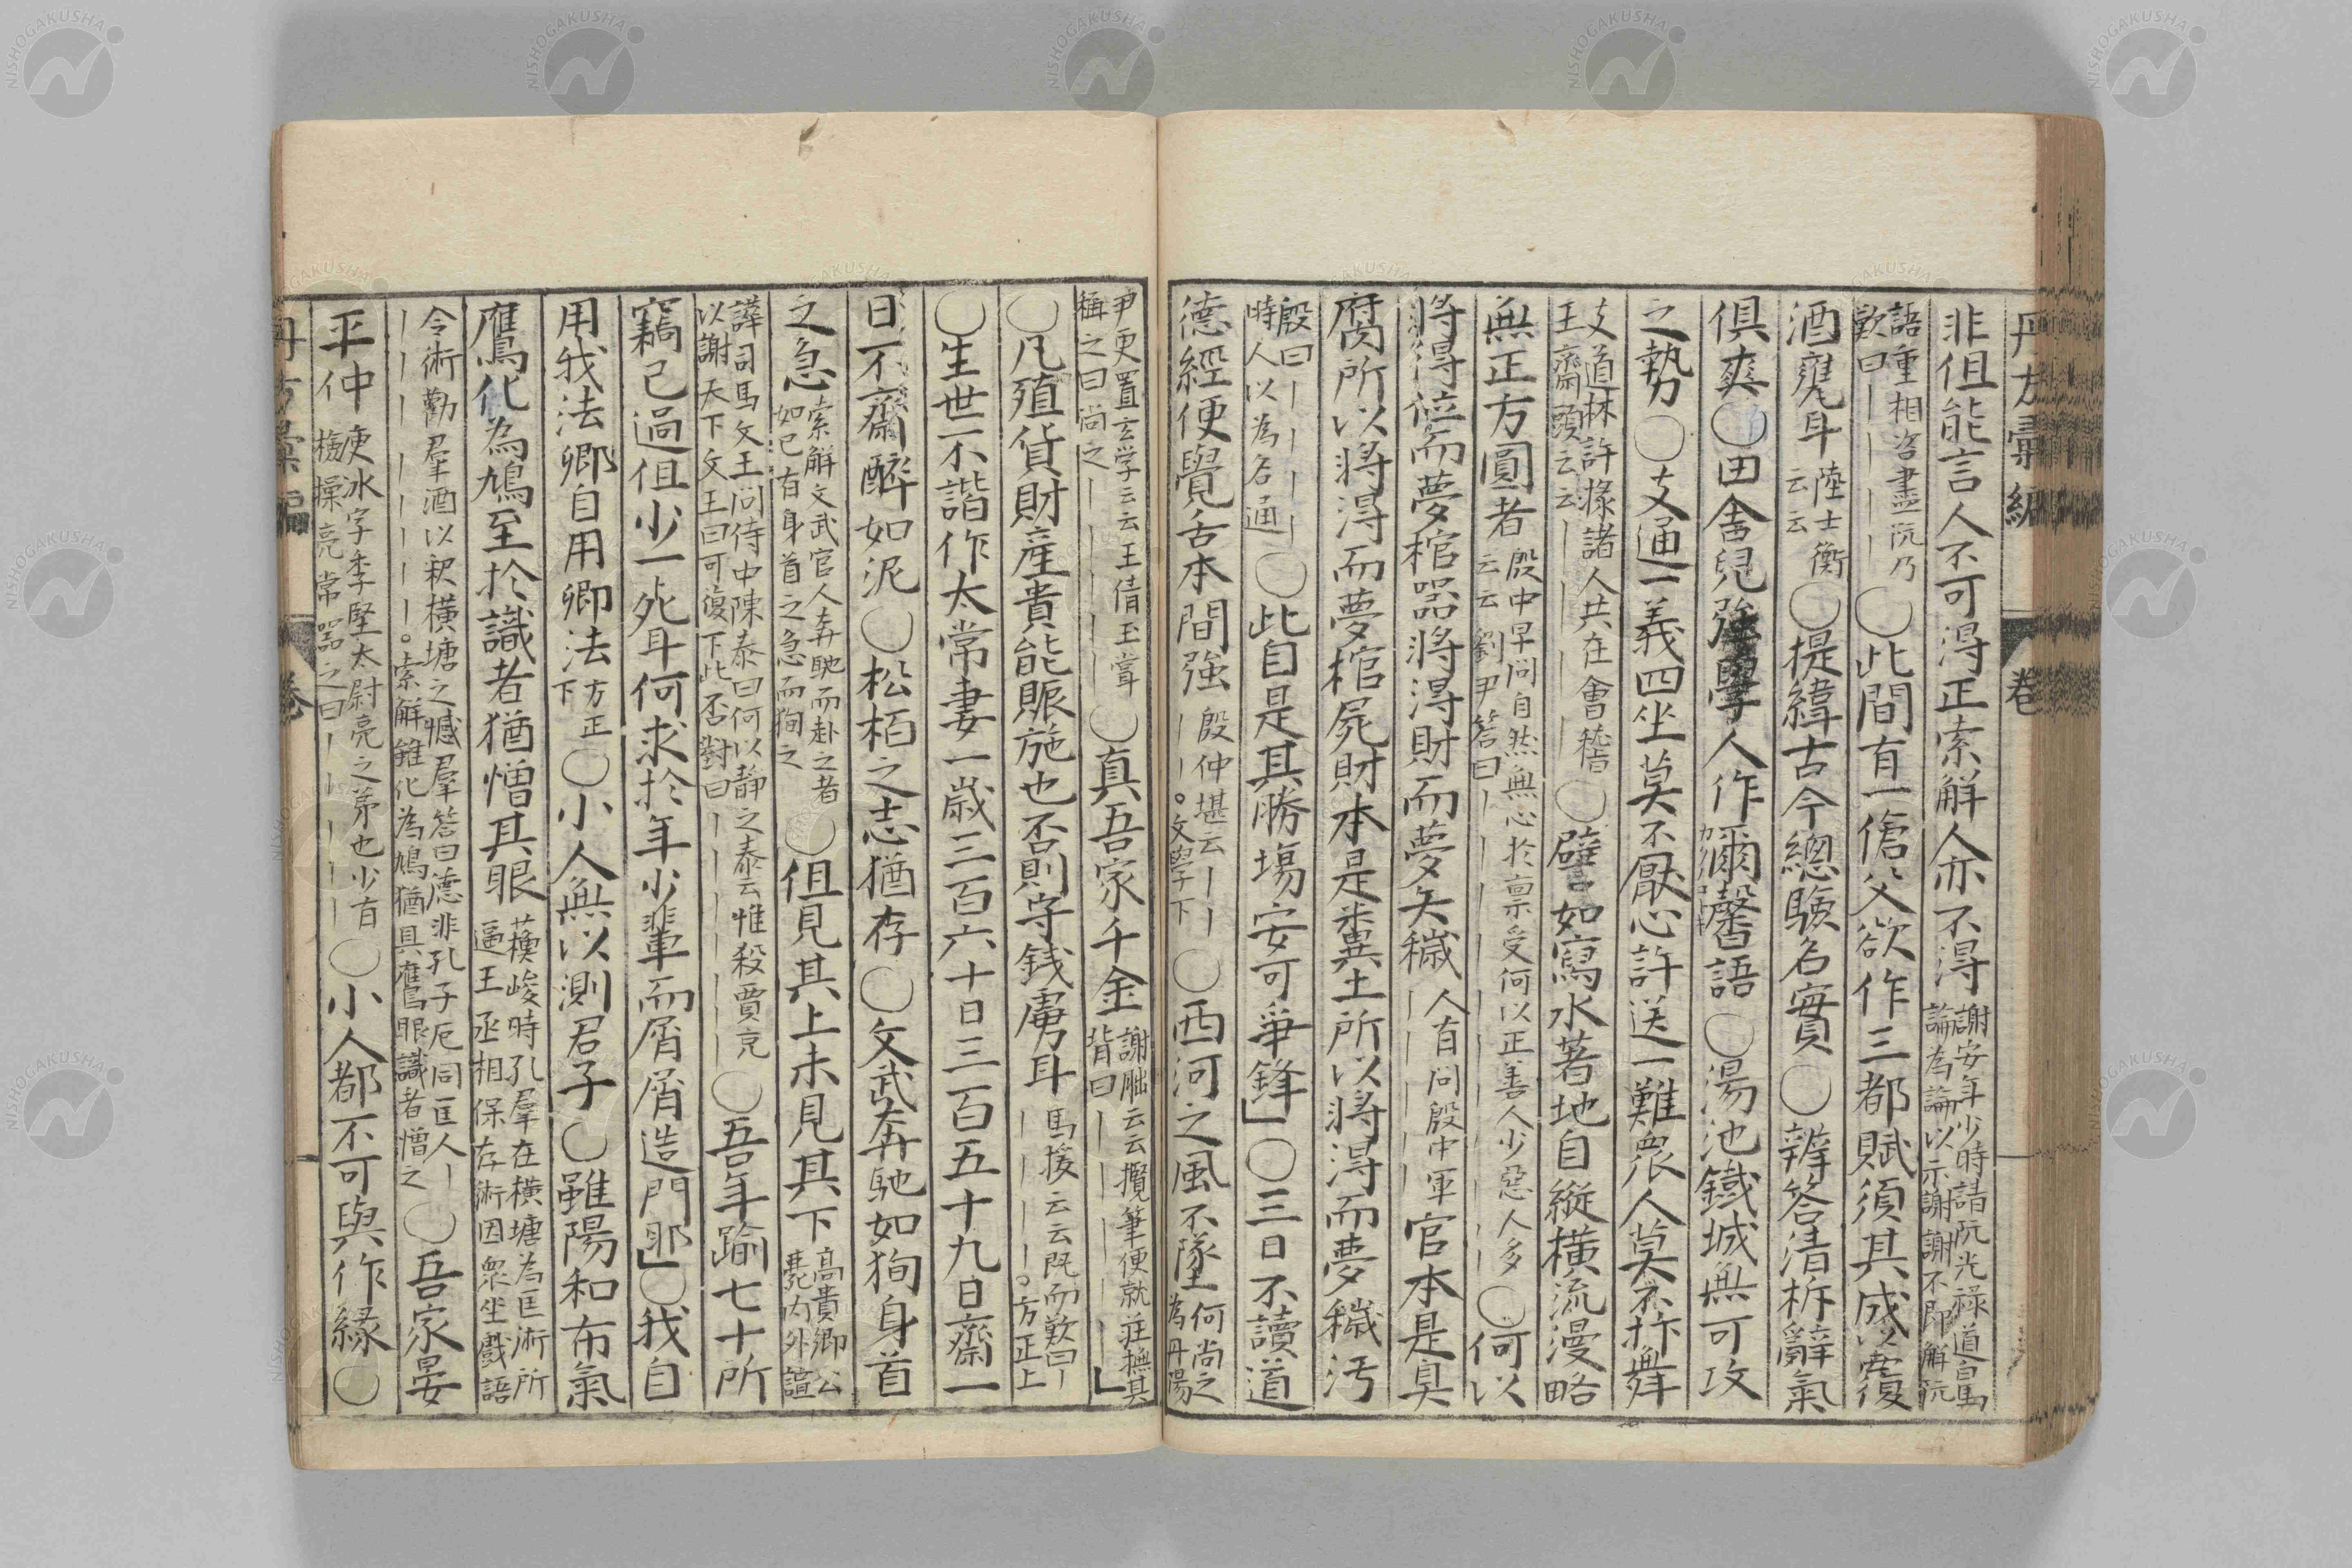 丹方彙編
卷
非但能言人不可得正索解人亦不得 謝安年少時請阮光祿道白馬
論為論以示謝謝不即解阮
語重相咨盡阮乃
歎曰｜｜｜｜ ○此間有一傖父欲作三都賦須其成以覆
酒甕耳 陸士衡
云云 ○提緯古今總驗名實○辨答清柝辭氣
俱爽○田舍兒強學人作爾馨語○湯池鐵城無可攻
之勢○支通一義四坐莫不厭心許送一難眾人莫不抃舞
支道林許掾諸人共在會稽
王齋頭云云｜｜｜｜ ○譬如寫水著地自縱橫流漫略
無正方圓者 殷中軍問自然無心於稟受何以正善人少惡人多
云云劉尹答曰｜｜｜｜ ○何以
將得位而夢棺器將得財而夢矢穢 人有問殷中軍
｜｜｜｜ 官本是臭
腐所以將得而夢棺屍財本是糞土所以將得而夢穢汚
殷曰｜｜｜｜
時人以為名通 ○此自是其勝場安可爭鋒」○三日不讀道
德經便覺舌本間強 殷仲堪云｜｜
｜｜。文學下 ○西河之風不墜 何尚之
為丹陽
尹更置玄学云云王倩玉嘗
稱之曰尚之｜｜｜｜ ○真吾家千金 謝朏云云攬筆便就莊撫其
背曰｜｜｜｜」
○凡殖貨財産貴能賑施也否則守銭虜耳 馬援云云既而歎曰｜
｜｜｜。方正上
○生世不諧作太常妻一歲三百六十日三百五十九日齋一
日不齋醉如泥○松柏之志猶存○文武奔馳如狥身首
之急 索解文武官人奔馳而赴之者
如己有身首之急而狥之 ○但見其上未見其下 高貴卿公
薨内外諠
譁司馬文王問侍中陳泰曰何以靜之泰云惟殺賈充
以謝天下文王曰可復下此否對曰｜｜｜｜ ○吾年踰七十所
竊己過但少一死耳何求於年少輩而屑屑造門耶」○我自
用我法卿自用卿法 方正
下 ○小人無以測君子○雖陽和布氣
鷹化為鳩至於識者猶憎其眼 蘓峻時孔羣在橫塘為匡術所
逼王丞相保存術因衆坐戲語
令術勸羣酒以釈橫塘之憾羣答曰德非孔子厄同匡人｜
｜｜｜｜｜｜。索解雖化為鳩猶具鷹眼識者憎之 ○吾家晏
平仲 庾冰字季堅太尉亮之弟也少有
檢操亮常器之曰｜｜｜｜ ○小人都不可與作緣○
丹方彙編
卷